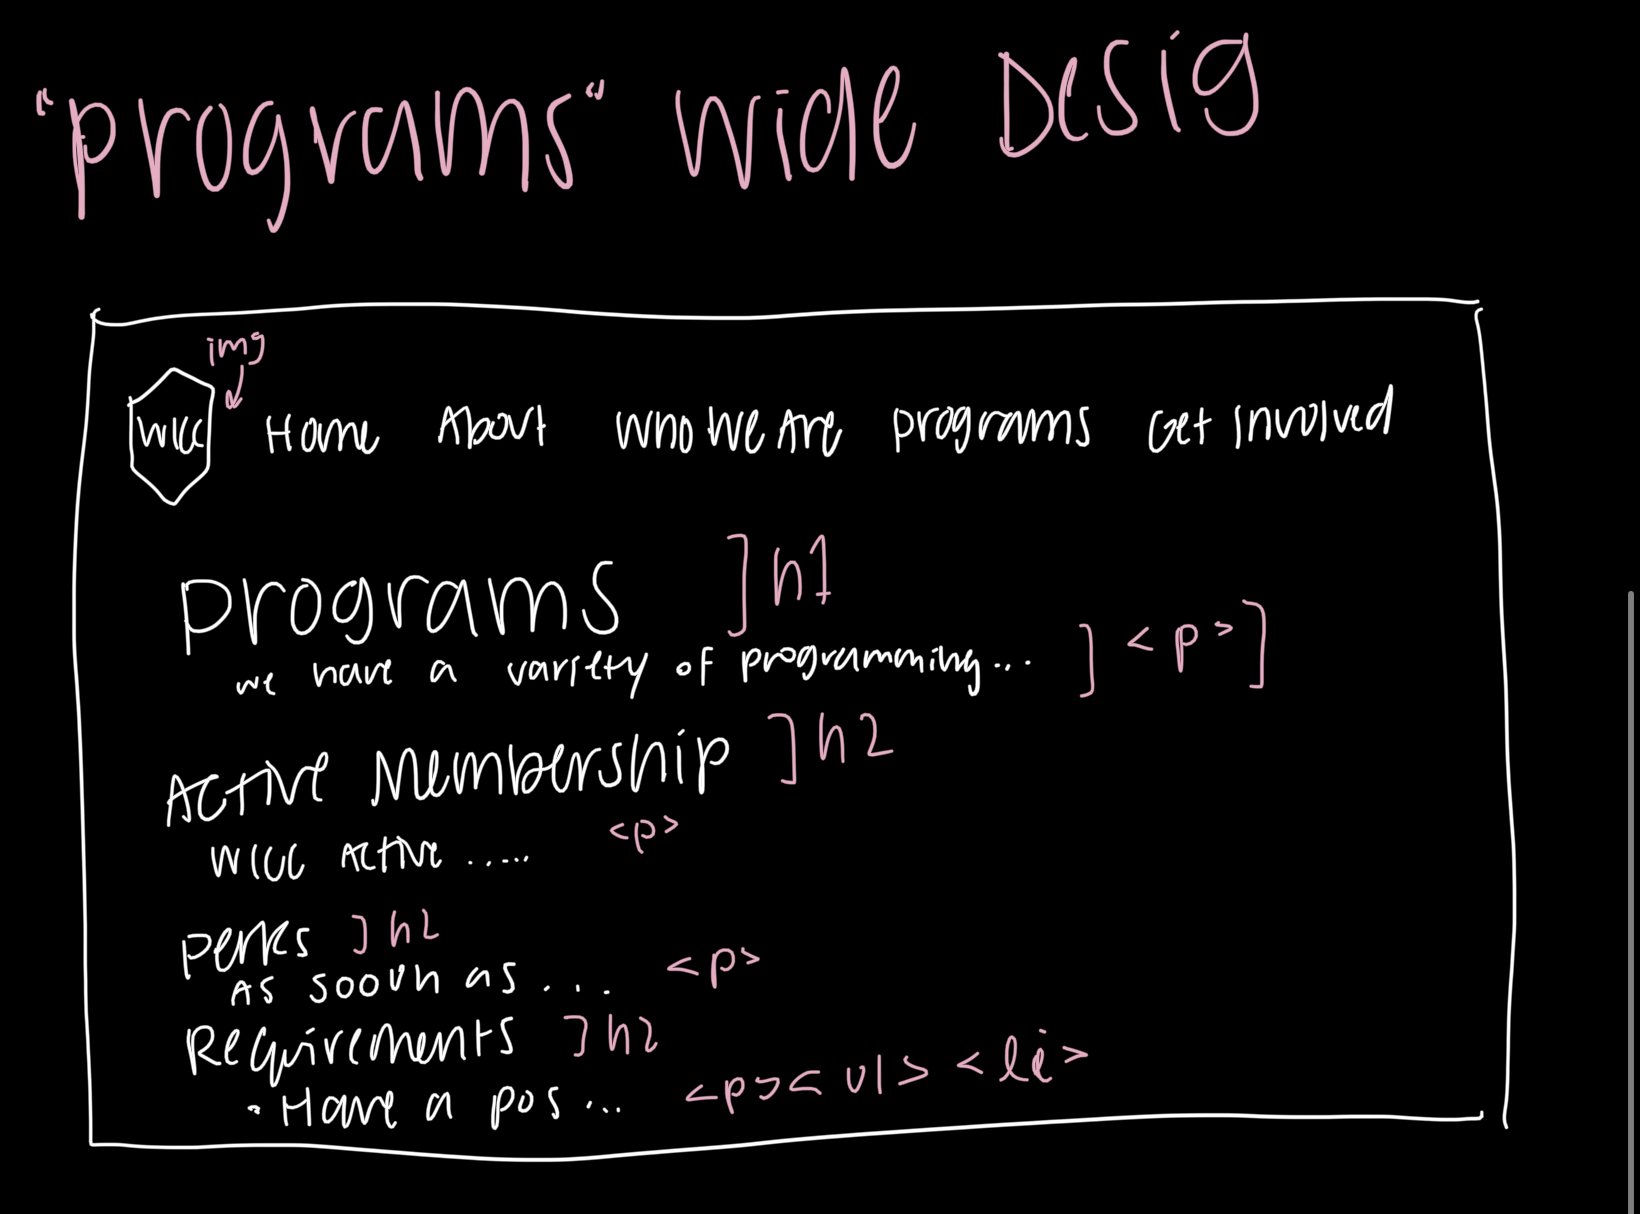 "programs" wide Desig
img
WICC Home About Who We Are programs Get Involved
programs ] h1
we have a variety of programming... ] <p>]
Active Membership ] h2
WICC Active ..... <p>
perks ] h2
As sooun as ... <p>
Requirements ] h2
• Have a pos... <p><ul><li>